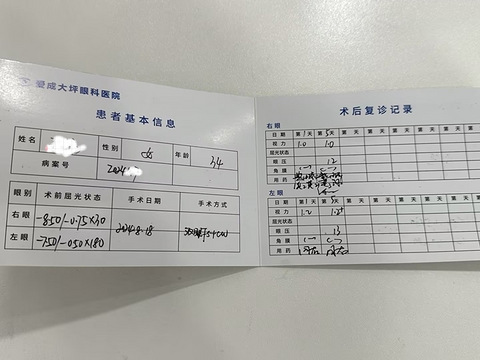 爱成大坪眼科医院
患者基本信息
姓名 性别 女 年龄 34
病案号
眼别 术前屈光状态 手术日期 手术方式
右眼 -8.50/-0.75×30 2024.8.18
左眼 -7.50/-0.50×180
术后复诊记录
右眼
日期 第1天 第5天 第 天 第 天 第 天 第 天 第 天
视力 1.0 1.0
屈光状态
眼压 12
角膜 (-) (-)
用药
左眼
日期 第 天 第 天 第 天 第 天 第 天 第 天 第 天
视力 1.2 1.2+
屈光状态
眼压 13
角膜 (-) (-)
用药 同右 同右